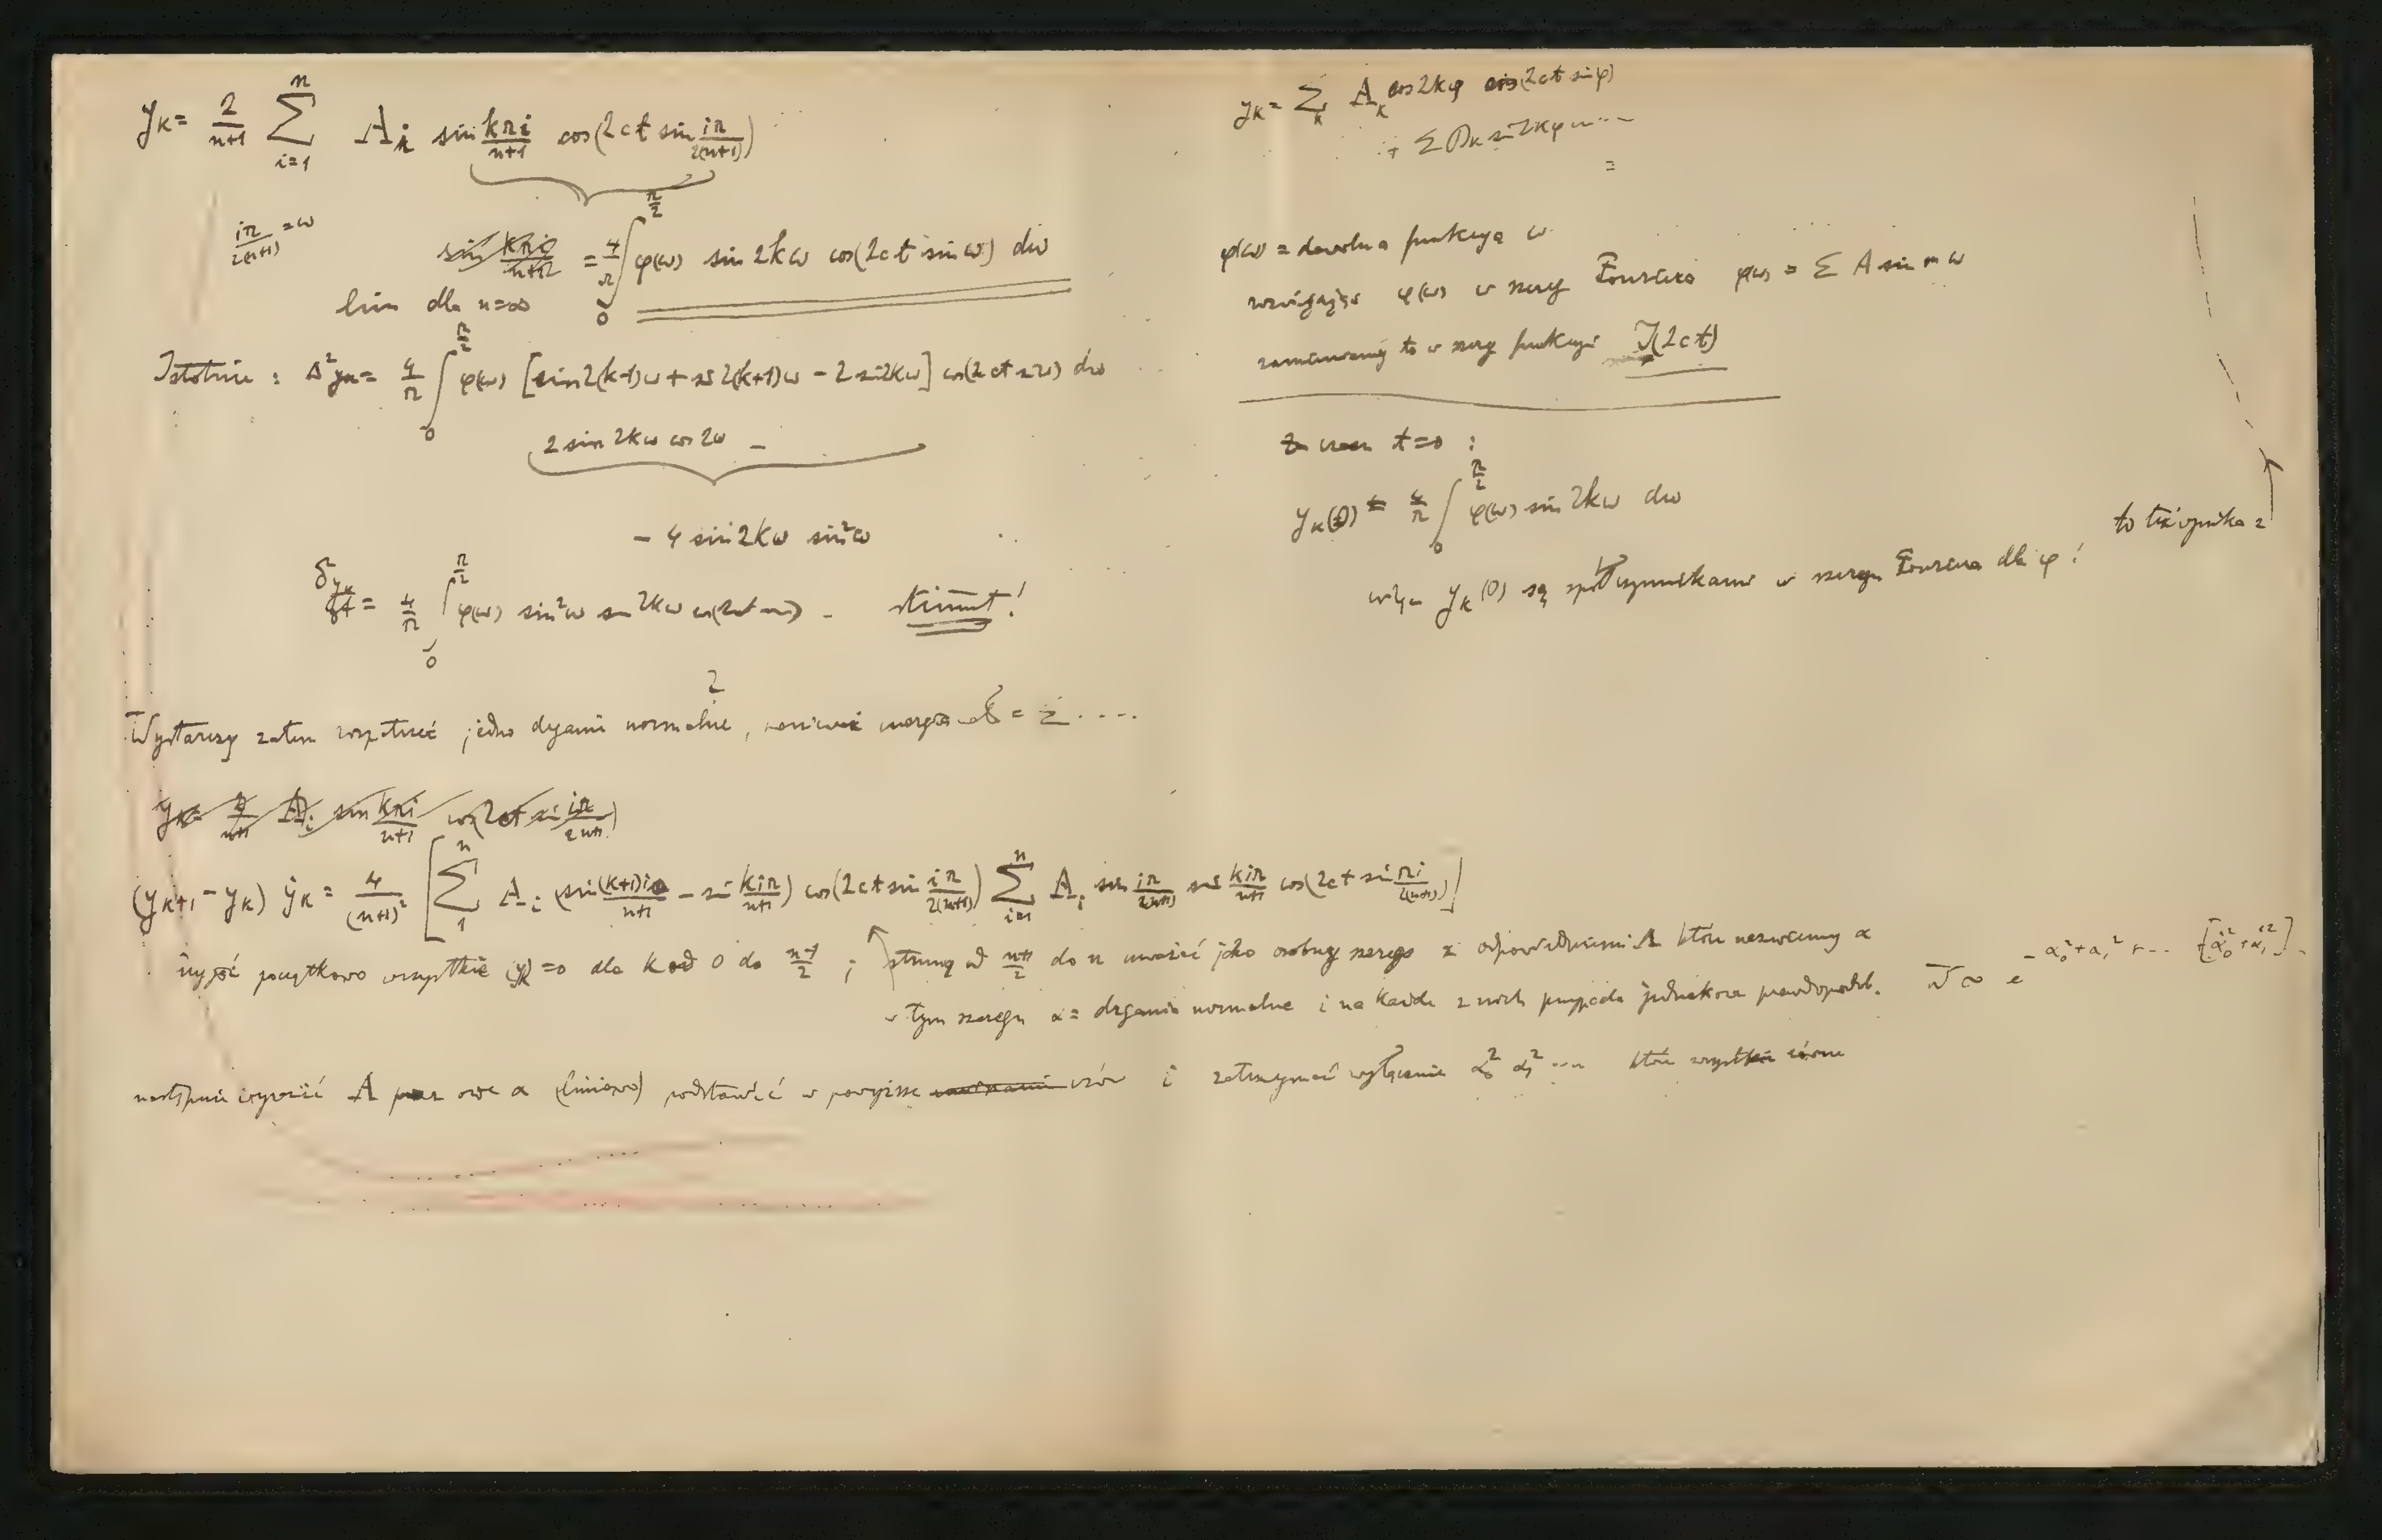 y_k = 2/(n+1) Σ_{i=1}^{n} A_i sin kπi/(n+1) cos(2ct sin iπ/2(n+1))
iπ/2(n+1) = ω
sin kπi/(n+1) = 4/π ∫_0^{π/2} φ(ω) sin 2kω cos(2ct sin ω) dω
lim dla n=∞
Istotnie : Δ²y_k = 4/π ∫_0^{π/2} φ(ω) [sin 2(k-1)ω + sin 2(k+1)ω - 2 sin 2kω] cos(2ct sin ω) dω
2 sin 2kω cos 2ω -
- 4 sin 2kω sin²ω
= 4/π ∫_0^{π/2} φ(ω) sin²ω sin 2kω cos(2ct sin ω) - stimmt!
Wystarczy zatem rozpatrzeć jedno drganie normalne, ponieważ energia = Σ ....
?
y_k = 2/(n+1) A_i sin kπi/(n+1) cos(2ct sin iπ/2(n+1))
(y_{k+1} - y_k) ẏ_k = 4/(n+1)² [Σ_1^n A_i (sin (k+1)iπ/(n+1) - sin kiπ/(n+1)) cos(2ct sin iπ/2(n+1)) Σ_{i=1}^n A_i sin iπ/2(n+1) sin kiπ/(n+1) cos(2ct sin πi/2(n+1))]
początkowo wszystkie (y_k) = 0 dla k od 0 do (n-1)/2 ; strunę od (n+1)/2 do n uważać jako osobny szereg z odpowiedniemi A które nazwiemy α
w tym szeregu α = drgania normalne i na każde z nich przypada jednakowe prawdopodob. W ∞ e^{- α₀² + α₁² + ... [α̇₀² + α̇₁²]}
następnie wyrazić A przez owe α (liniowo) podstawić w powyższe wzór i zatrzymać wyłącznie α₀² α₁² ... które wszystkie równe
y_k = Σ_k A_k cos 2kφ cos(2ct sin φ)
+ Σ B_k sin 2kφ ....
=
φ(ω) = dowolna funkcya ω
rozwijając φ(ω) w szereg Fouriera φ(ω) = Σ A sin m ω
zamieniamy to w szereg funkcyi J(2ct)
czas t=0 :
y_k(0) = 4/π ∫_0^{π/2} φ(ω) sin 2kω dω
więc y_k(0) są spółczynnikami w szeregu Fouriera dla φ! to też wynika z